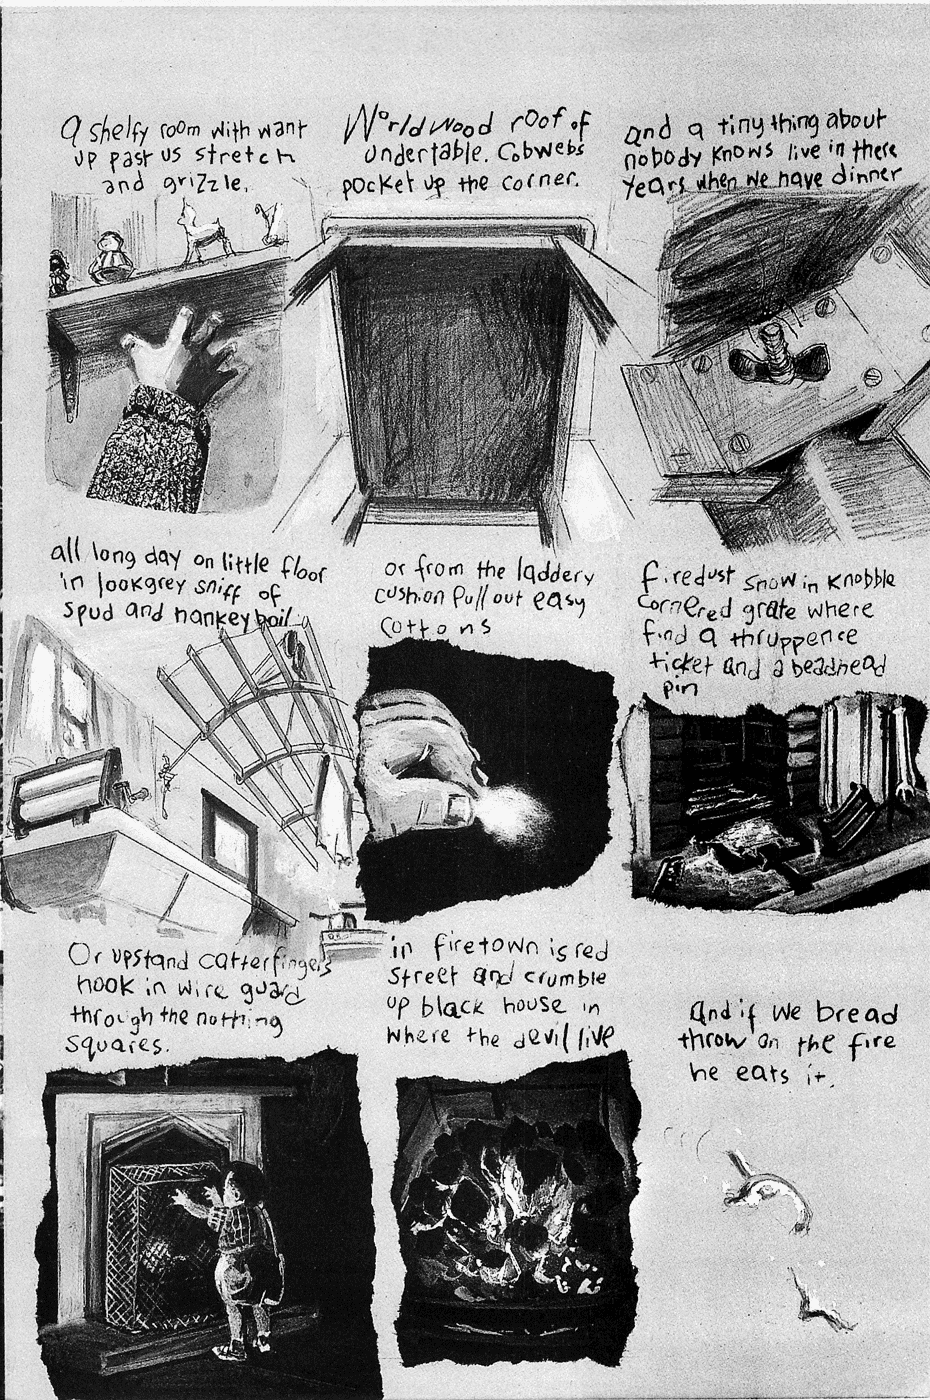 a shelfy room with want
up past us stretch
and grizzle.
Worldwood roof of
undertable. Cobwebs
pocket up the corner.
and a tiny thing about
nobody knows live in there
years when we have dinner
all long day on little floor
in lookgrey sniff of
spud and hankeyboil
or from the laddery
cushion pull out easy
cottons
firedust snow in knobble
cornered grate where
find a thruppence
ticket and a beadhead
pin
Or upstand catterfingers
hook in wire guard
through the nothing
squares.
in firetown is red
street and crumble
up black house in
where the devil live
And if we bread
throw on the fire
he eats it.